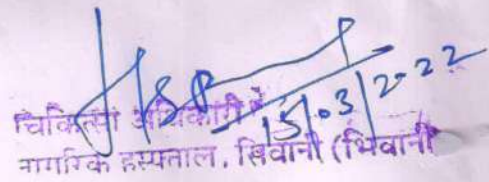 15/03/2022
चिकित्सा अधिकारी
नागरिक हस्पताल, सिवानी (भिवानी